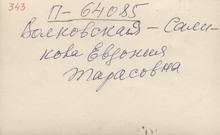 343
П-64085
Волковская-Сали-
кова Евдокия
Тарасовна